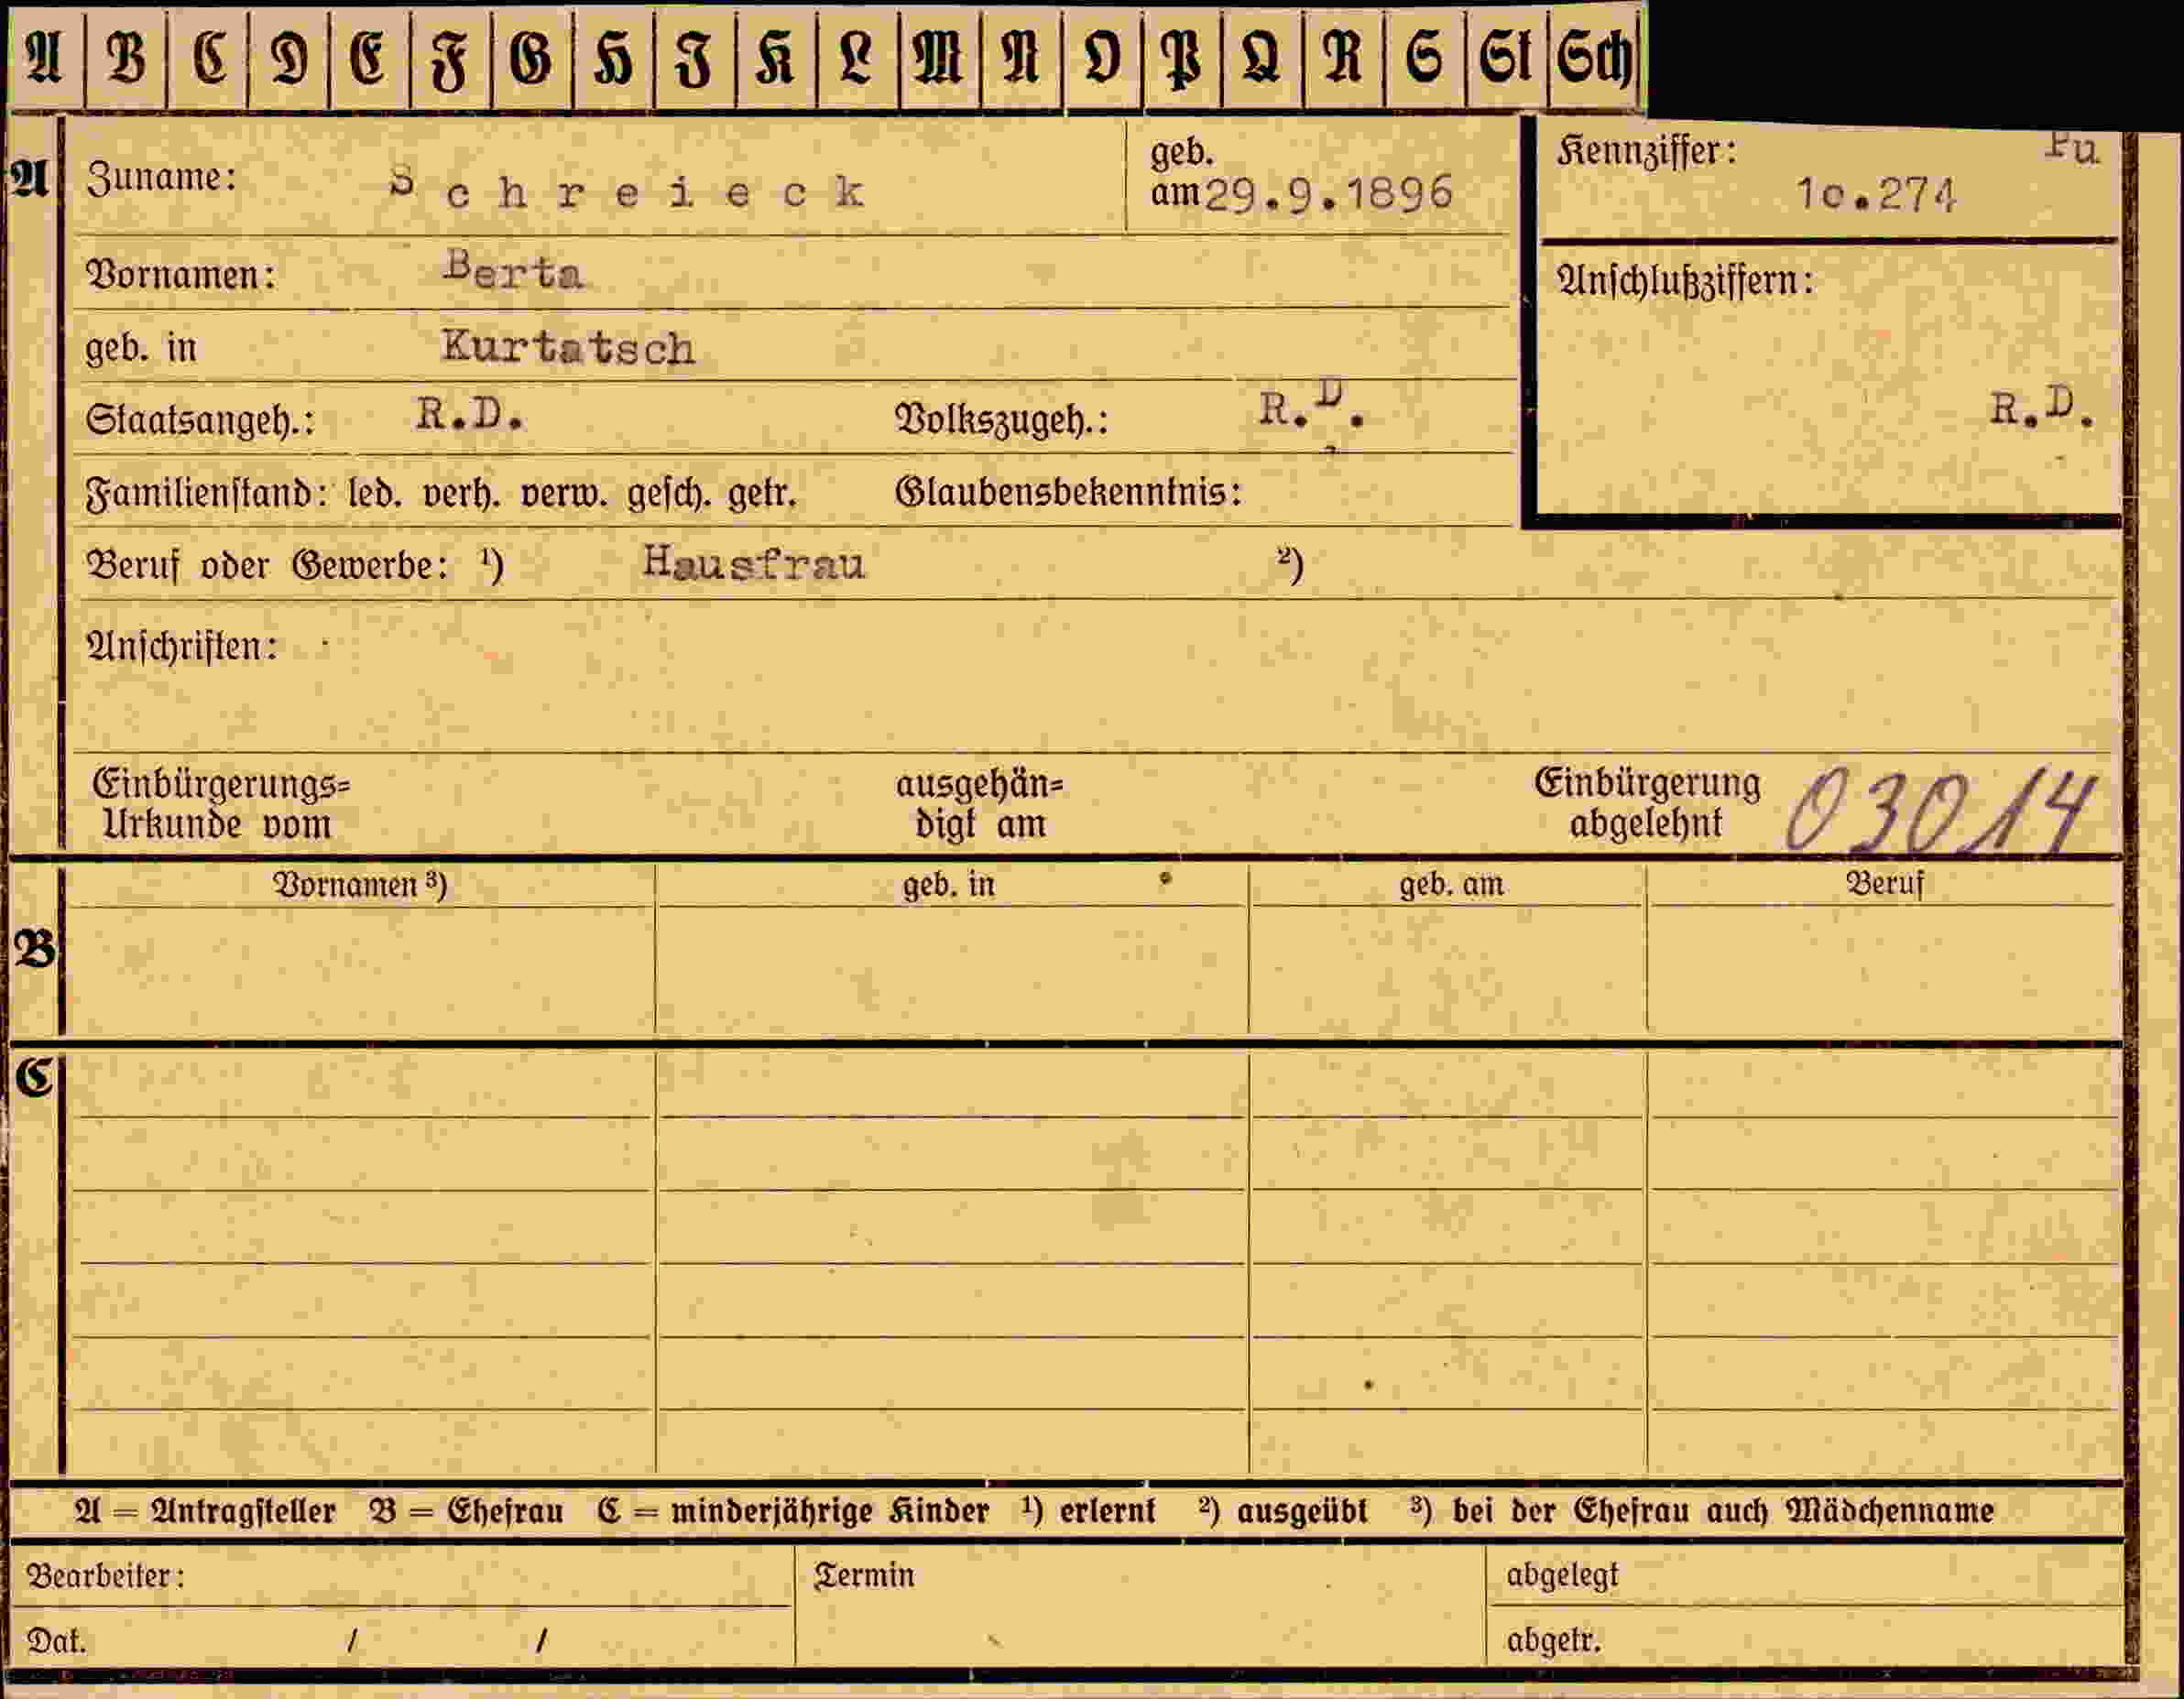 A B C D E F G H J K L M N O P Q R S St Sch
A
Zuname: Schreieck
geb. am 29.9.1896
Kennziffer: Pu
1o.274
Vornamen: Berta
Anschlußziffern:
geb. in Kurtatsch
Staatsangeh.: R.D. Volkszugeh.: R.D.
R.D.
Familienstand: led. verh. verw. gesch. getr. Glaubensbekenntnis:
Beruf oder Gewerbe: ¹) Hausfrau ²)
Anschriften:
Einbürgerungs=
Urkunde vom
ausgehän=
digt am
Einbürgerung
abgelehnt
03014
Vornamen ³) geb. in geb. am Beruf
B
C
A = Antragsteller B = Ehefrau C = minderjährige Kinder ¹) erlernt ²) ausgeübt ³) bei der Ehefrau auch Mädchenname
Bearbeiter: Termin abgelegt
Dat. / / abgetr.